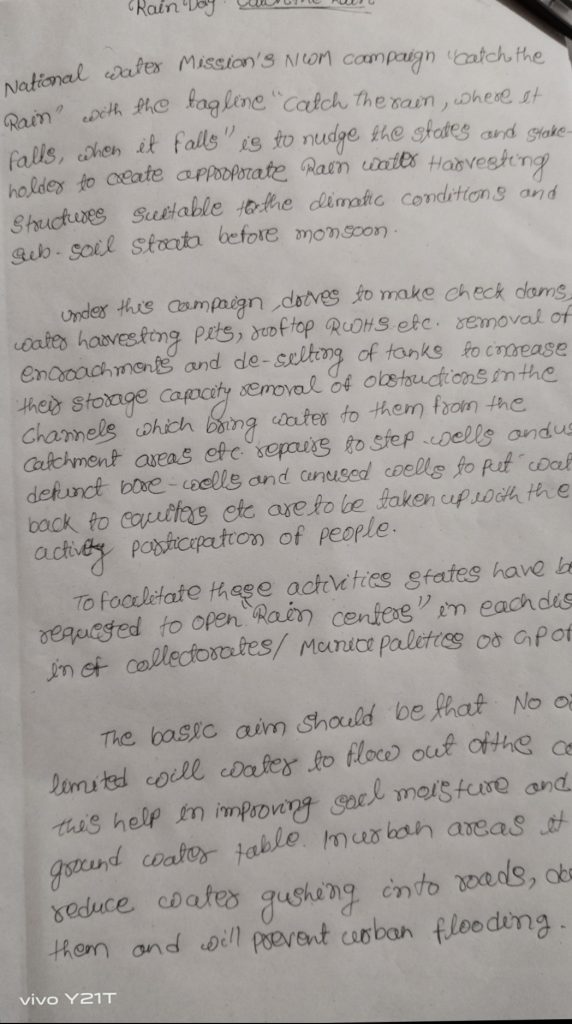 Rain Day Catch the Rain
National water Mission's NWM campaign "catch the
Rain" with the tagline "catch the rain, where it
falls, when it falls" is to nudge the states and stake-
holder to create appropriate Rain water Harvesting
Structures suitable to the climatic conditions and
sub-soil strata before monsoon.
under this campaign, drives to make check dams,
water harvesting pits, rooftop RWHS etc. removal of
encroachments and de-silting of tanks to increase
their storage capacity removal of obstructions in the
channels which bring water to them from the
catchment areas etc. repairs to step-wells and us
defunct bore-wells and unused wells to put wat
back to equifers etc are to be taken up with the
active participation of people.
To facilitate these activities states have be
requested to open "Rain centers" in each dis
in of collectorates/ Municipalities or GP of
The basic aim should be that No o
limited will water to flow out of the co
this help in improving soil moisture and
ground water table. In urban areas it
reduce water gushing into roads,
them and will prevent urban flooding.
vivo Y21T